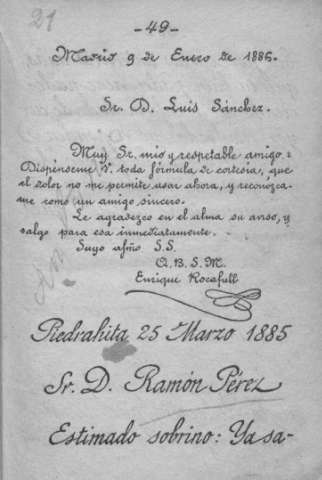 21
-49-
Madrid 9 de Enero de 1885.
Sr. D. Luis Sánchez.
Muy Sr. mio y respetable amigo:
Dispénseme V. toda fórmula de cortesía, que
el dolor no me permite usar ahora, y reconozca-
me como un amigo sincero.
Le agradezco en el alma su aviso, y
salgo para esa inmediatamente.
Suyo afmo S.S.
Q.B.S.M.
Enrique Rocafull
Piedrahita 25 Marzo 1885
Sr. D. Ramón Pérez
Estimado sobrino: Ya sa-